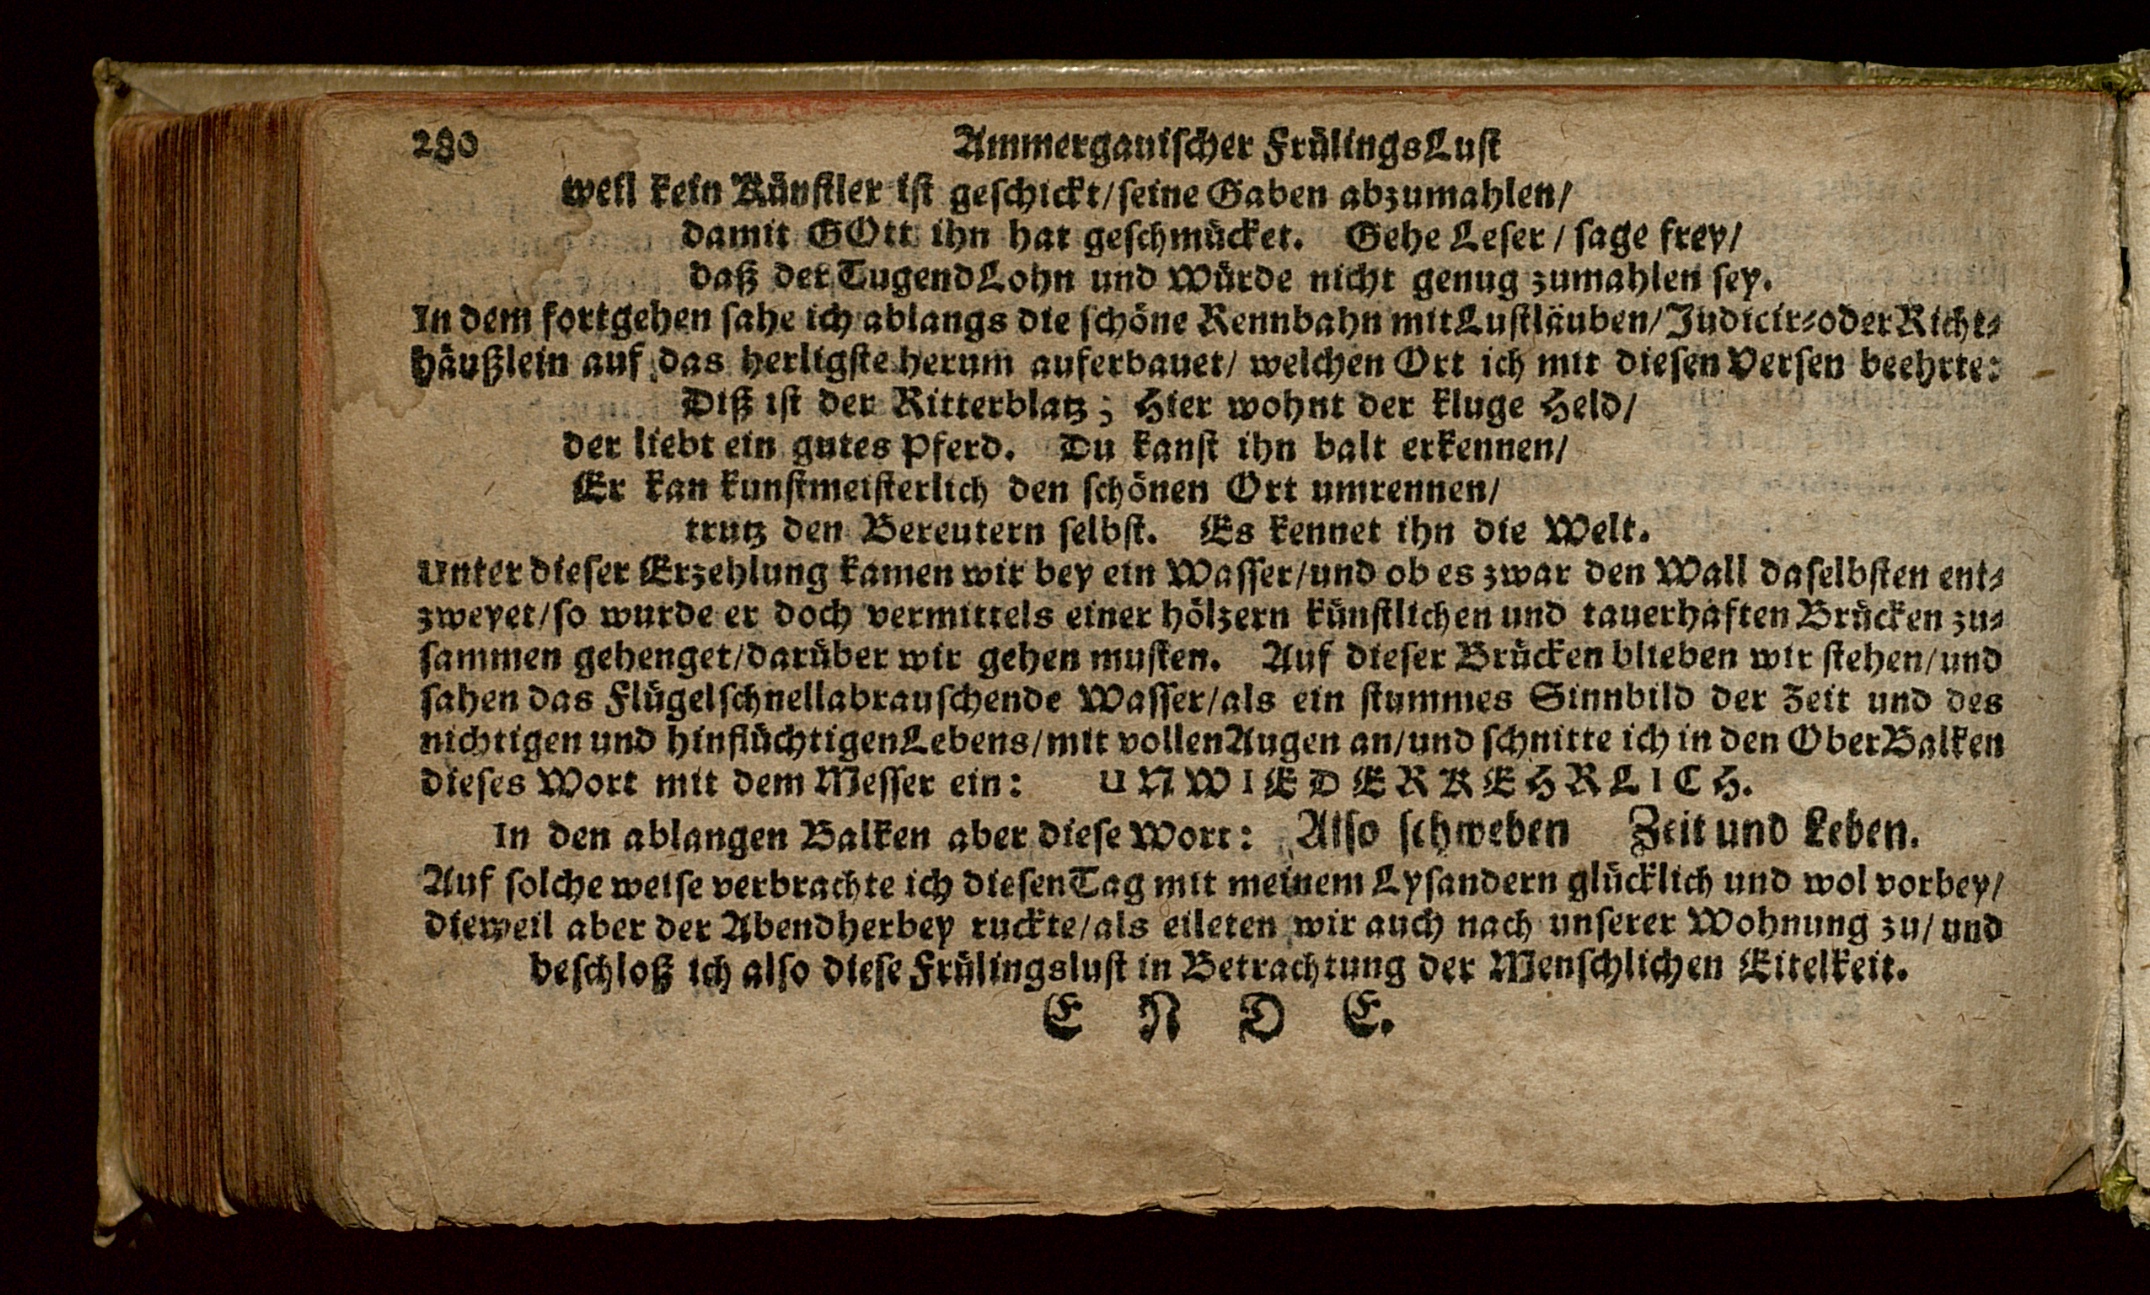 280 Ammergauischer FrülingsLust
weil kein Künstler ist geschickt/seine Gaben abzumahlen/
damit GOtt ihn hat geschmücket. Gehe Leser / sage frey/
daß der TugendLohn und Würde nicht genug zumahlen sey.
In dem fortgehen sahe ich ablangs die schöne Rennbahn mitLustläuben/Judicir-oderRicht-
häußlein auf das herligste herum auferbauet/ welchen Ort ich mit diesen Versen beehrte:
Diß ist der Ritterblatz; Hier wohnt der kluge Held/
der liebt ein gutes Pferd. Du kanst ihn balt erkennen/
Er kan kunstmeisterlich den schönen Ort umrennen/
trutz den Bereutern selbst. Es kennet ihn die Welt.
Unter dieser Erzehlung kamen wir bey ein Wasser/und ob es zwar den Wall daselbsten ent-
zweyet/so wurde er doch vermittels einer hölzern künstlichen und tauerhaften Brücken zu-
sammen gehenget/darüber wir gehen musten. Auf dieser Brücken blieben wir stehen/und
sahen das Flügelschnellabrauschende Wasser/als ein stummes Sinnbild der Zeit und des
nichtigen und hinflüchtigenLebens/mit vollenAugen an/und schnitte ich in den OberBalken
dieses Wort mit dem Messer ein: UNWIEDERKEHRLICH.
In den ablangen Balken aber diese Wort: Also schweben Zeit und Leben.
Auf solche weise verbrachte ich diesenTag mit meinem Lysandern glücklich und wol vorbey/
dieweil aber der Abendherbey ruckte/als eileten wir auch nach unserer Wohnung zu/ und
beschloß ich also diese Frülingslust in Betrachtung der Menschlichen Eitelkeit.
E N D E.